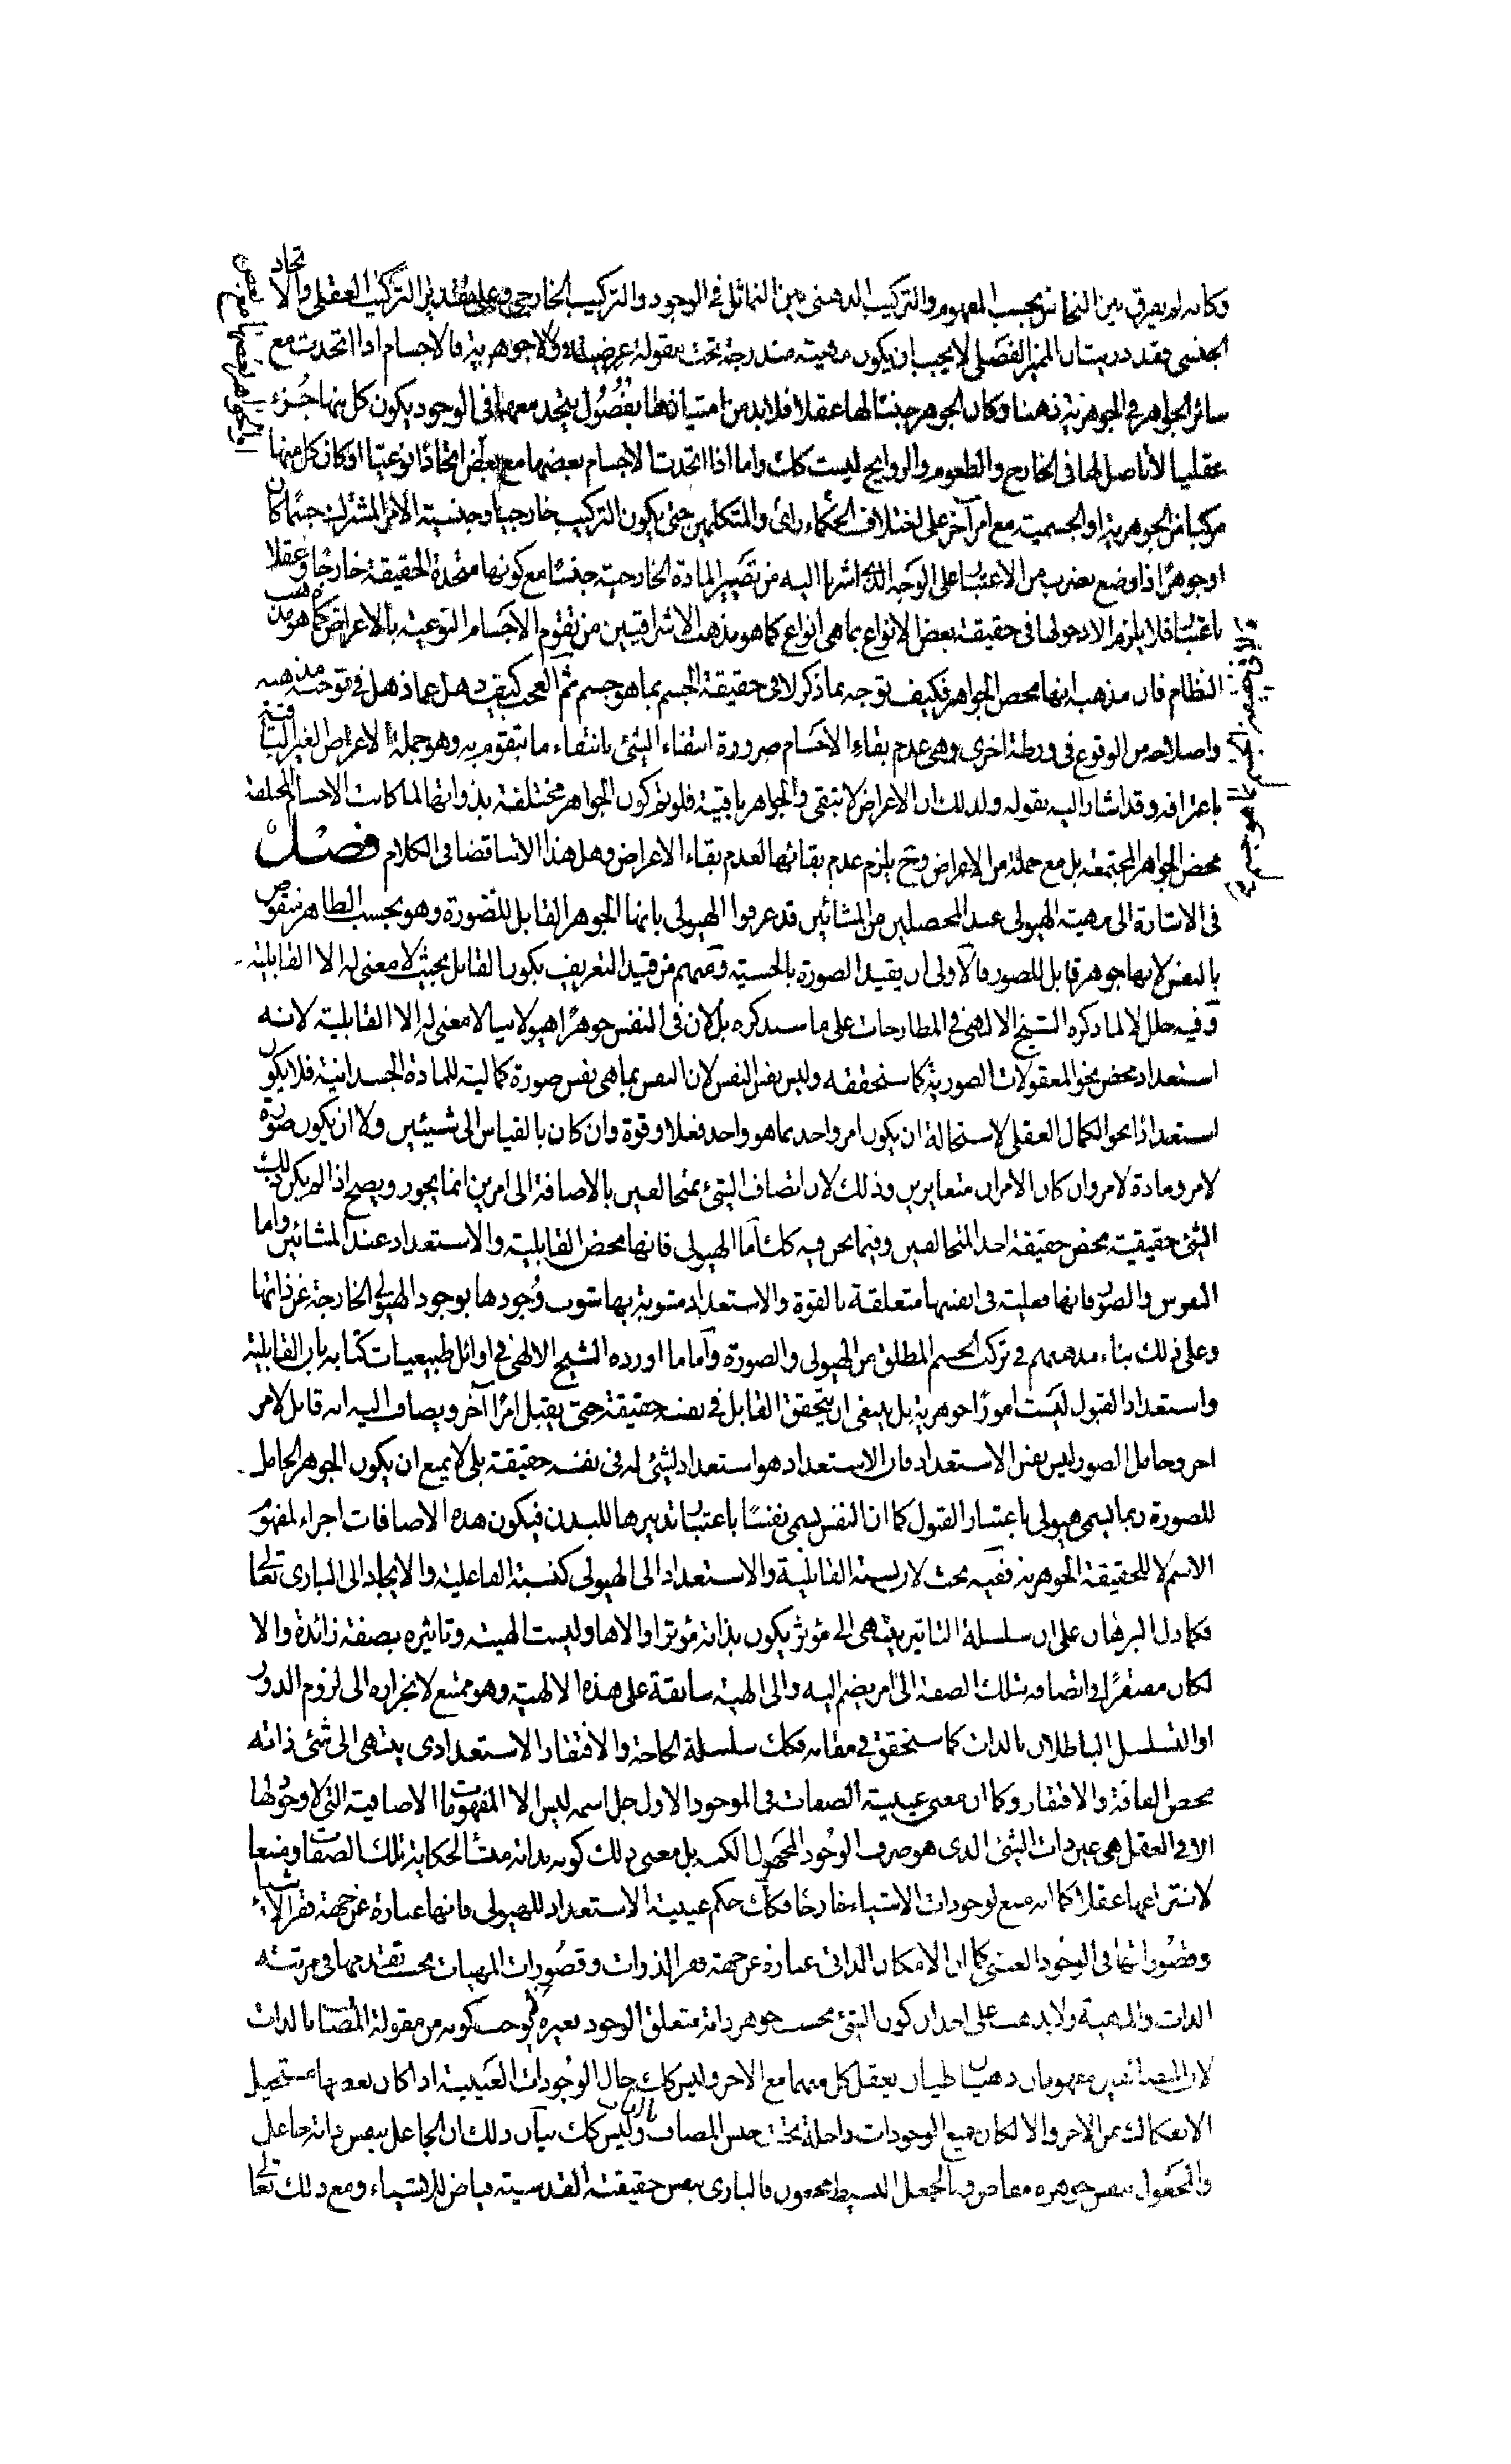 وكانه لم يفرق بين التجانس بحسب المفهوم والتركيب الذهنى وبين التماثل فى الوجود والتركيب الخارجى وعلى تقدير التركيب العقلى والاتحاد
الجنسى فقد دريت ان المميز الفصلى لا يجب ان يكون مهيته مندرجة تحت مقولة عرضية ولا جوهرية فالاجسام اذا اتحدت مع
سائر الجواهر فى الجوهرية ذهنا وكان الجوهر جنسا لها عقلا فلا بد من امتيازها بفصول يتحد معها فى الوجود يكون كل منها جزء
عقليا لا تاصل لها فى الخارج والطعوم والروايح ليست كك واما اذا اتحدت الاجسام بعضها مع بعض اتحادا نوعيا او كان كل منها
مركبا من الجوهرية او الجسمية مع امر آخر على اختلاف الحكماء راى والمتكلمين حتى يكون التركيب خارجيا وجنسية الامر المشترك جسما كان
او جوهرا اذا وضع بضرب من الاعتبار على الوجه الذى اشرنا اليه من تصيير المادة الخارجية جنسا مع كونها متحدة الحقيقة خارجا وعقلا
باعتبار فلا يلزم الا دخولها فى حقيقة بعض الانواع بما هى انواع كما هو مذهب الاشراقيين من تقوم الاجسام النوعية بالاعراض كما هو مذهب
النظام فان مذهبه انها محض الجواهر فكيف توجه بما ذكر لا فى حقيقة الجسم بما هو جسم ثم العجب كيف ذهل عما ذهل فى توجيه مذهبه
واصلاحه من الوقوع فى ورطة اخرى وهى عدم بقاء الاجسام ضرورة انتفاء الشئ بانتفاء ما يتقوم به وهو جملة الاعراض الغير الباقية
باعترافه وقد اشار اليه بقوله ولذلك ان الاعراض لا تبقى والجواهر باقية فلو لم تكون الجواهر مختلفة بذواتها لما كانت الاجسام المختلفة
محض الجواهر المجتمعة بل مع جملة من الاعراض وح يلزم عدم بقائها لعدم بقاء الاعراض وهل هذا الا تناقضا فى الكلام فصل
فى الاشارة الى مهية الهيولى عند المحصلين من المشائين قد عرفوا الهيولى بانها الجوهر القابل للصورة وهو بحسب الظاهر منقوض
بالنفس لانها جوهر قابل للصور فالاولى ان يقيد الصورة بالحسية ومنهم من قيد التعريف بكون القابل بحيث لا معنى له الا القابلية
وفيه خلل لا لما ذكره الشيخ الالهى فى المطارحات على ما سنذكره بل لان فى النفس جوهرا هيولانيا لا معنى له الا القابلية لانه
استعداد محض نحو المعقولات الصورية كما سنحققه وليس نفس النفس لان النفس بما هى نفس صورة كمالية للمادة الجسدانية فلا يكون
استعدادا نحو الكمال العقلى لاستحالة ان يكون امر واحد بما هو واحد فعلا وقوة وان كان بالقياس الى شيئين ولا ان يكون صورة
لامر ومادة لامر وان كان الامران متغايرين وذلك لان اتصاف الشئ بمتخالفين بالاضافة الى امرين انما يجوز ويصح اذا لم يكن ذلك
الشئ حقيقته محض حقيقة احد المتخالفين وفيما نحن فيه كك اما الهيولى فانها محض القابلية والاستعداد عند المشائين واما
النفوس والصور فانها فعلية فى انفسها متعلقة بالقوة والاستعداد مشوبة بها شوب وجودها بوجود الهيولى الخارجة عن ذاتها
وعلى ذلك بناء مذهبهم فى تركب الجسم المطلق من الهيولى والصورة واما ما اورده الشيخ الالهى فى اوائل طبيعيات كتابه بان القابلية
واستعداد القبول ليست امورا جوهرية بل ينبغى ان يتحقق القابل فى نفسه حقيقة حتى يقبل امرا آخر ويضاف اليه انه قابل لامر
اخر وحامل الصور ليس نفس الاستعداد فان الاستعداد هو استعداد لشئ له فى نفسه حقيقة بلى لا يمنع ان يكون الجوهر الحامل
للصورة ربما يسمى هيولى باعتبار القبول كما ان النفس يسمى نفسا باعتبار تدبيرها للبدن فيكون هذه الاضافات اجزاء لمفهوم
الاسم لا للحقيقة الجوهرية ففيه بحث لان نسبة القابلية والاستعداد الى الهيولى كنسبة الفاعلية والايجاد الى البارى تعالى
فكما دل البرهان على ان سلسلة التاثير ينتهى الى مؤثر يكون بذاته مؤثرا والاها وليست الهيته وتاثيره بصفة زائدة والا
لكان مفتقرا فى اتصافه بتلك الصفة الى امر ينضم اليه والى الهية سابقة على هذه الالهية وهو ممتنع لانجراره الى لزوم الدور
او التسلسل الباطلان بالذات كما سنحقق فى مقامه فكك سلسلة الحاجة والافتقار الاستعدادى ينتهى الى شئ ذاته
محض الفاقة والافتقار وكما ان معنى عينية الصفات فى الموجود الاول جل اسمه ليس الا المفهومات الاضافية التى لا وجود لها
الا فى العقل هى عين ذات الشئ الذى هو صرف الوجود المجهول الكنه بل معنى ذلك كونه بذاته منشأ لحكاية تلك الصفات ومنبعا
لانتزاعها عقلا كما انه منبع لوجودات الاشياء خارجا فكك حكم عينية الاستعداد للهيولى فانها عبارة عن جهة فقر الاشياء
وقصوراتها فى الوجود العينى كما ان الامكان الذاتى عبارة عن جهة فقر الذوات وقصورات المهيات بحسب تقدمها فى مرتبته
الذات والمهية ولا يذهب على احد ان كون الشئ بحسب جوهر ذاته متعلق الوجود بغيره يوجب كونه من مقولة المضاف بالذات
لان المتضائفين مفهومان ذهنيان يعقل كل منهما مع الاخر وليس كك حال الوجودات العينية اذا كان بعضها مستحيل
الانفكاك عن الاخر والا لكان جميع الوجودات داخلة تحت جنس المضاف بالذات وليس كك بيان ذلك ان الجاعل بنفس ذاته جاعل
والمجعول بنفس جوهره مفاض الجعل البسيط فالبارى بنفس حقيقته القدسية فياض للاشياء ومع ذلك تعالى